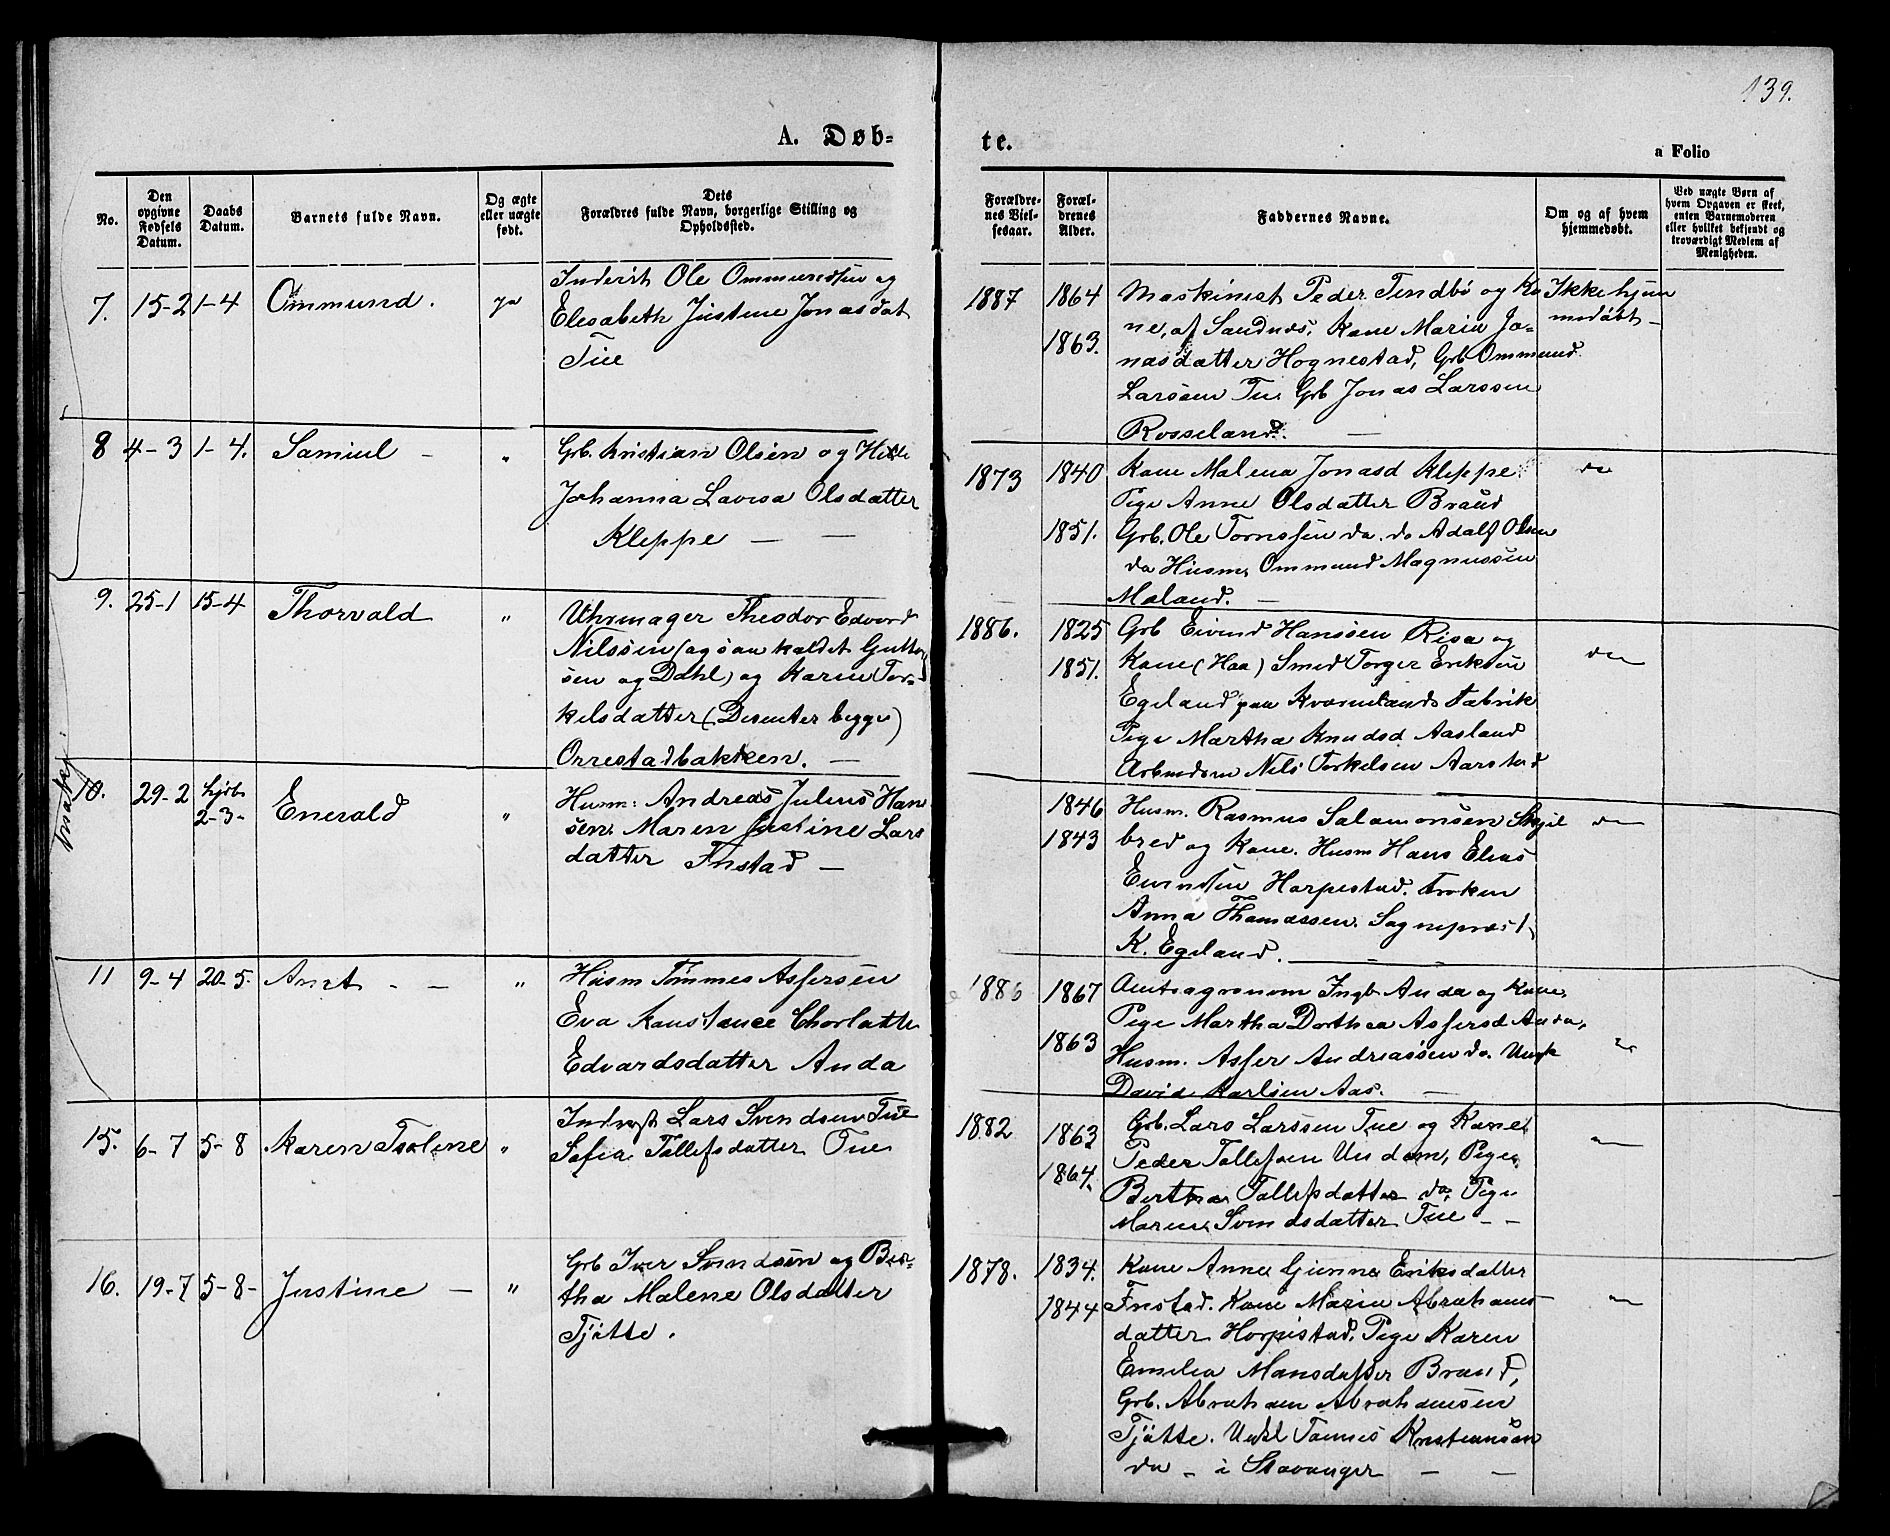 139.
A. Døb-
te.
a Folio
No.
Den opgivne Fødsels Datum.
Daabs Datum.
Barnets fulde Navn.
Og ægte eller uægte født.
Dets Forældres fulde Navn, borgerlige Stilling og Opholdssted.
Forældre-nes Viel-sesaar.
Foræl-drenes Alder.
Faddernes Navne.
Om og af hvem hjemmedøbt.
Ved uægte Børn af hvem Opgaven er skeet, enten Barnemoderen eller hvilket bekjendt og troværdigt Medlem af Menigheden.
7. 15-2 1-4 Ommund. ja
Inderst Ole Ommundsen og
Elesabeth Justine Jonasdat
Tue
1887 1864 1863.
Maskinist Peder Tendbø og Ko
ne, af Sandnæs, Kone Maria Jo-
nasdatter Hognestad, Grb Ommund
Larssen Tue Grb Jonas Larssen
Rosseland. —
Ikke hjem
medøbt —
8 4-3 1-4. Samuel — "
Grb. Kristian Olsen og
Johanna Lavisa Olsdatter
Kleppe — —
1873 1840 1851.
Kone Malena Jonasd Kleppe.
Pige Anne Olsdatter Braud
Grb. Ole Tornssen do. do Adalf Olsen
do Husm. Ommund Magnussen
Maland. —
do
9. 25-1 15-4 Thorvald "
Uhrmager Theodor Edvard
Nilssen (ogsaa kaldet Guttor
sen og Dahl) og Karen Tor-
kelsdatter (Desenter begge)
Orrestadbakken. —
1886. 1825 1851.
Grb Eivind Hanssen Risa og
Kone (Haa) Smed Torger Eriksen
Egeland paa Kværnelands Fabrik
Pige Martha Knudsd Aasland
Arbeidsm Nils Torkelsen Aarstad
do
10. 29-2 hjdb 2-3- Enevald "
Husm: Andreas Julius Han
sen. Maren Justine Lars
datter Fristad —
1846 1843
Husm. Rasmus Salamonsen Skjel
bred og Kone. Husm Hans Elias
Harpestad. Frøken
Anna Thomassen. Sognepræst
K. Egeland.
do
11 9-4 20-5. Arnt - - "
Husm Tønnes Asserssen
Eva Konstance Chorlatte
Edvardsdatter Anda
1886 1867 1863
Amtsagronom Ingb. Anda og Kone,
Pige Martha Dorthea Assersd Anda,
Husm. Asser Andreassen do. Ungk
David Karlsen Aas. —
15. 6-7 5-8 Karen Tolene "
Inderst Lars Svendsen Tue
Sofia Tollefsdatter Tue
1882 1863 1864.
Grb. Lars Larssen Tue og Kone
Peder Tollefsen Undem, Pige
Bertha Tollefsdatter do, Pige
Maren Svendsdatter Tue - -
16. 19-7 5-8- Justine — "
Grb Iver Svendsen og Ber-
tha Malene Olsdatter
Tjøtte.
1878. 1834. 1844
Kone Anne Gunne Eriksdatter
Fristad. Kone Maria Abrahams
datter Harpestad, Pige Karen
Emelia Mansdatter Braud,
Grb. Abraham Abrahamsen
Tjøtte. Ungkl Tønnes Kristiansen
do - i Stavanger — —